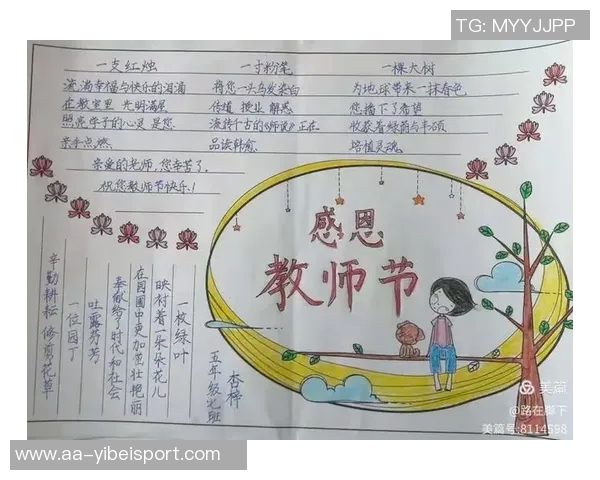 TG: MYYJJPP
一支红烛
流淌幸福与快乐的泪滴
在教室里 光明满屋
照亮学子的心灵 是您
亲手点燃
一寸粉笔
将您一头乌发染白
传道 授业 解惑
流转千古的《师说》正在
品读韩愈
一棵大树
为地球带来一抹春色
您播下了希望
收获着绿荫与丰硕
培植灵魂
亲爱的老师，您辛苦了，
祝您教师节快乐！
感恩
教师节
一枚绿叶
映衬着一朵朵花儿
在园圃中更加茁壮艳丽
奉献给了时代和社会
吐露芬芳
一位园丁
辛勤耕耘 修剪了花草
五年级七班
杏梓
美篇
@路在脚下
美篇号:8114598
www.aa-yibeisport.com